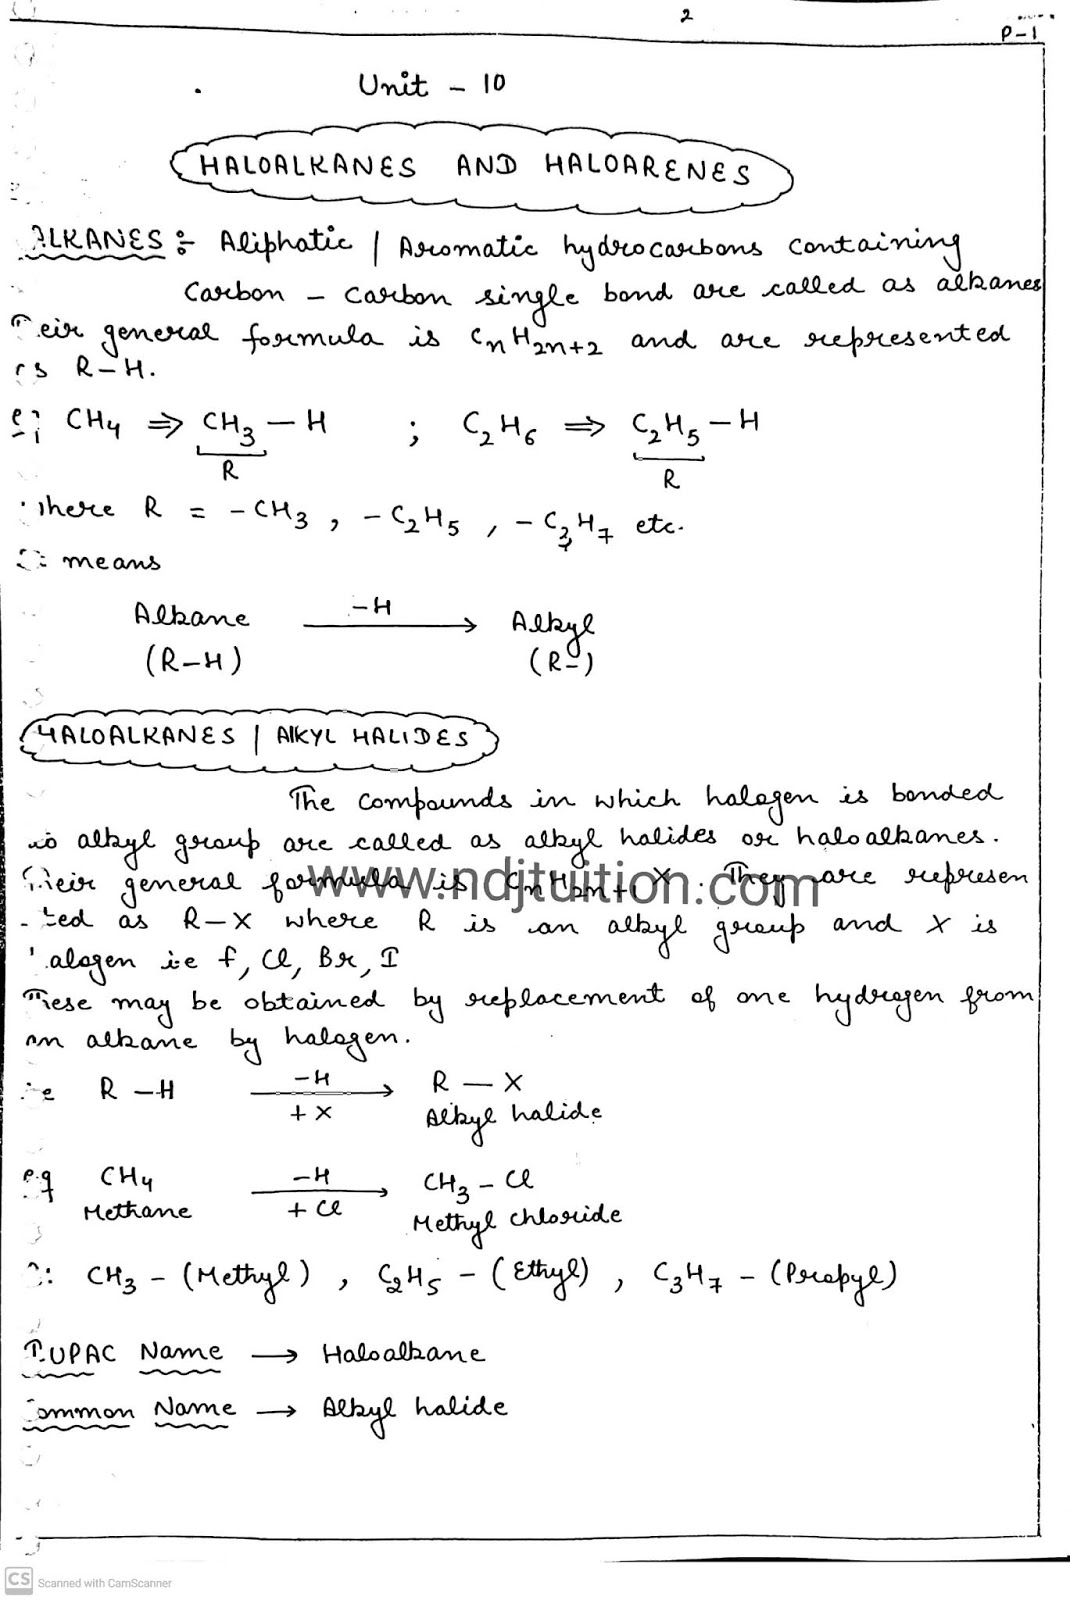 2
P-1
Unit - 10
HALOALKANES AND HALOARENES
ALKANES :- Aliphatic / Aromatic hydrocarbons containing
Carbon - Carbon single bond are called as alkanes
Their general formula is CnH2n+2 and are represented
as R-H.
eg CH4 ⇒ CH3 - H ; C2H6 ⇒ C2H5 - H
R R
where R = -CH3, -C2H5, -C3H7 etc.
means
Alkane -H → Alkyl
(R-H) (R-)
HALOALKANES / AlKYL HALIDES
The compounds in which halogen is bonded
to alkyl group are called as alkyl halides or haloalkanes.
Their general formula is CnH2n+1X. They are represen
www.ndjtuition.com
-ted as R-X where R is an alkyl group and X is
halogen i.e f, Cl, Br, I
These may be obtained by replacement of one hydrogen from
an alkane by halogen.
i.e R-H -H → R - X
+ X Alkyl halide
e.g CH4 -H → CH3 - Cl
Methane + Cl Methyl chloride
CH3 - (Methyl), C2H5 - (Ethyl), C3H7 - (Propyl)
IUPAC Name → Haloalkane
Common Name → Alkyl halide
CS Scanned with CamScanner